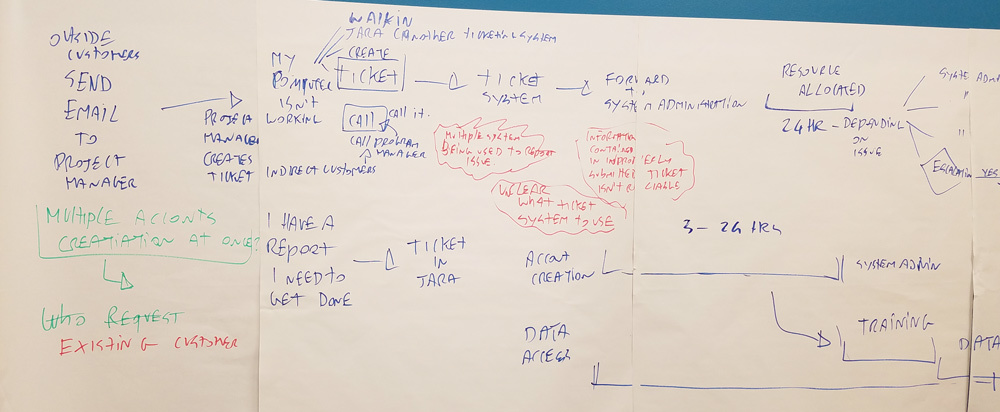 OUTSIDE
CUSTOMERS
SEND
EMAIL
TO
PROJECT
MANAGER
PROJECT
MANAGER
CREATES
TICKET
MULTIPLE ACCONTS
CREATIATION AT ONCE?
WHO REQUEST
EXISTING CUSTOMER
WALKIN
JARA (ANOTHER TICKETING SYSTEM
CREATE
TICKET
MY
COMPUTER
ISN'T
WORKING
CALL
CALL it.
CALL PROGRAM
MANAGER
INDIRECT CUSTOMERS
TICKET
SYSTEM
FORWARD
TO
SYSTEM ADMINISTRATION
RESOURCE
ALLOCATED
24 HR - DEPENDING
ON
ISSUE
SYSTE ADMI
"
"
ESCALATION
YES
MULTIPLE SYSTEM
BEING USED TO REPORT
ISSUE
INFORMATION
CONTAINED
IN INDPROPERLY
SUBMITTED TICKET
ISN'T RELIABLE
UNCLEAR
WHAT TICKET
SYSTEM TO USE
I HAVE A
REPORT
I NEED TO
GET DONE
TICKET
IN
JARA
3 - 24 HRS
ACCONT
CREATION
SYSTEM ADMIN
TRAINING
DATA
ACCESS
DATA